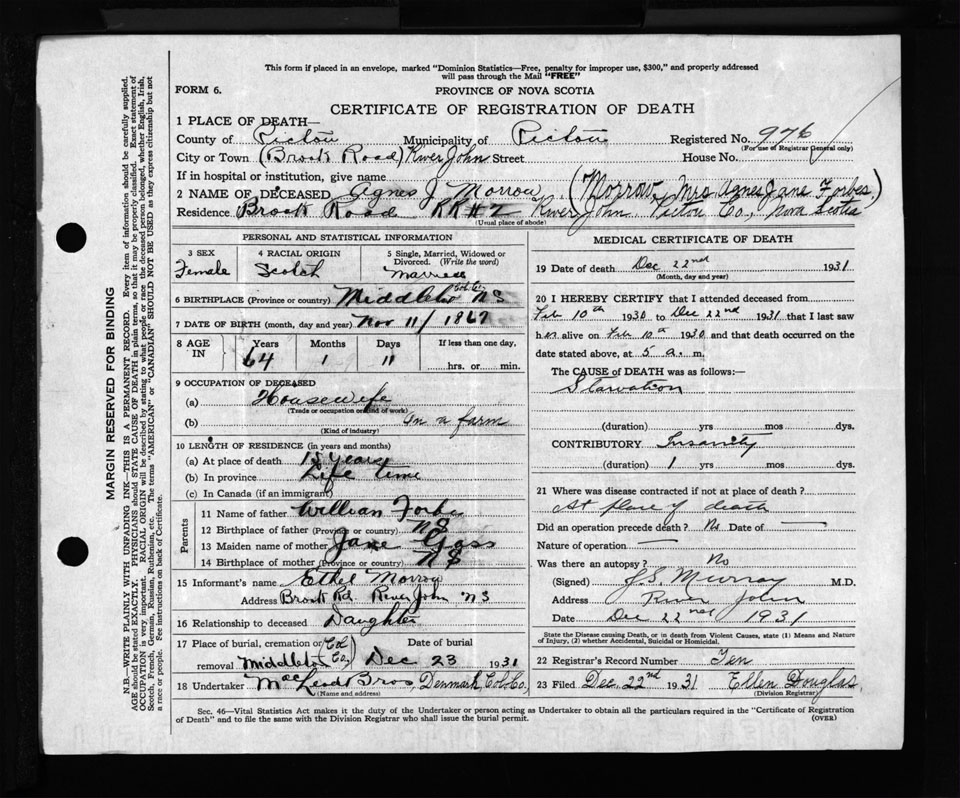 This form if placed in an envelope, marked "Dominion Statistics—Free, penalty for improper use, $300," and properly addressed
will pass through the Mail "FREE"
FORM 6.
PROVINCE OF NOVA SCOTIA
CERTIFICATE OF REGISTRATION OF DEATH
1 PLACE OF DEATH—
County of Pictou Municipality of Pictou Registered No. 976
(For use of Registrar General only)
City or Town (Brook Road) River John Street House No.
If in hospital or institution, give name
2 NAME OF DECEASED Agnes J Morrow (Morrow, Mrs Agnes Jane Forbes)
Residence Brook Road RR#2 River John, Pictou Co., Nova Scotia
(Usual place of abode)
PERSONAL AND STATISTICAL INFORMATION
3 SEX Female
4 RACIAL ORIGIN Scotch
5 Single, Married, Widowed or Divorced. (Write the word) Married
6 BIRTHPLACE (Province or country) Middleton Col. Co. NS
7 DATE OF BIRTH (month, day and year) Nov 11/1867
8 AGE IN Years 64 Months 1 Days 11 If less than one day, hrs. or min.
9 OCCUPATION OF DECEASED
(a) Housewife
(Trade or occupation or kind of work)
(b) On a farm
(Kind of industry)
10 LENGTH OF RESIDENCE (in years and months)
(a) At place of death 15 years
(b) In province Life time
(c) In Canada (if an immigrant)
Parents
11 Name of father William Forbes
12 Birthplace of father (Province or country) NS
13 Maiden name of mother Jane Gass
14 Birthplace of mother (Province or country) NS
15 Informant's name Ethel Morrow
Address Brook Rd. River John NS
16 Relationship to deceased Daughter
17 Place of burial, cremation or removal Middleton Col Co. Date of burial Dec 23 1931
18 Undertaker MacLeod Bros, Denmark Col. Co.
(Name and address)
MEDICAL CERTIFICATE OF DEATH
19 Date of death Dec 22nd 1931
(Month, day and year)
20 I HEREBY CERTIFY that I attended deceased from
Feb 10th 1930 to Dec 22nd 1931 that I last saw
her alive on Feb 10th 1930 and that death occurred on the
date stated above, at 5 a. m.
The CAUSE of DEATH was as follows:—
Starvation
(duration) yrs mos dys.
CONTRIBUTORY Insanity
(duration) 1 yrs mos dys.
21 Where was disease contracted if not at place of death?
At place of death
Did an operation precede death? No Date of —
Nature of operation —
Was there an autopsy? No
(Signed) J.S. Murray M.D.
Address River John
Date Dec 22nd 1931
State the Disease causing Death, or in death from Violent Causes, state (1) Means and Nature
of Injury, (2) whether Accidental, Suicidal or Homicidal.
22 Registrar's Record Number Ten
23 Filed Dec. 22nd 1931 Ellen Douglas
(Division Registrar)
Sec. 46—Vital Statistics Act makes it the duty of the Undertaker or person acting as Undertaker to obtain all the particulars required in the "Certificate of Registration
of Death" and to file the same with the Division Registrar who shall issue the burial permit.
(OVER)
MARGIN RESERVED FOR BINDING
N.B.—WRITE PLAINLY WITH UNFADING INK—THIS IS A PERMANENT RECORD. Every item of information should be carefully supplied.
AGE should be stated EXACTLY. PHYSICIANS should STATE CAUSE OF DEATH in plain terms, so that it may be properly classified. Exact statement of
OCCUPATION is very important. RACIAL ORIGIN will be described by stating to what people or race the deceased person belonged, whether English, Irish,
Scotch, French, German, Russian, Ruthenian, etc. The terms "AMERICAN" or "CANADIAN" SHOULD NOT BE USED as they express citizenship but not
a race or people. See instructions on back of Certificate.